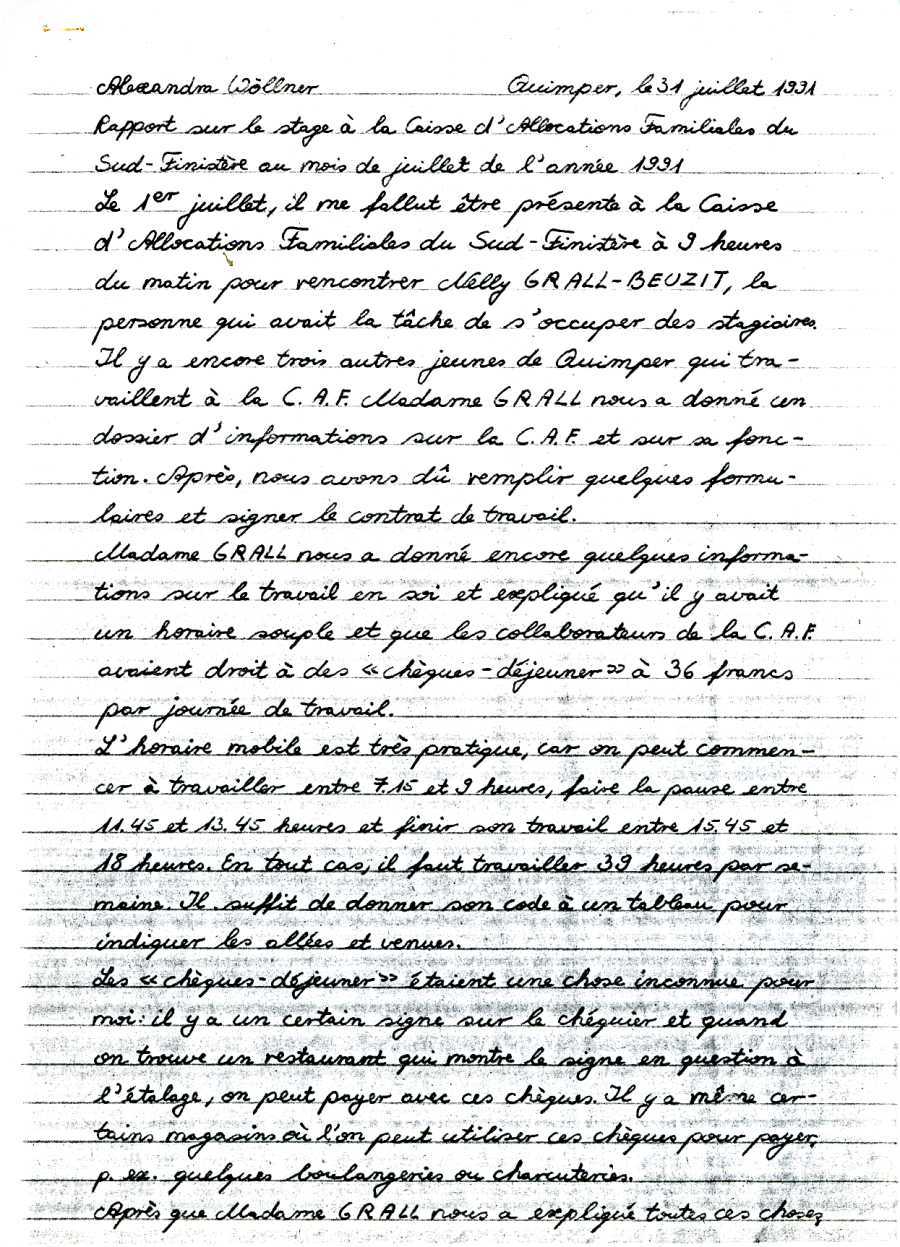 Alexandra Wöllner Quimper, le 31 juillet 1991
Rapport sur le stage à la Caisse d'Allocations Familiales du
Sud-Finistère au mois de juillet de l'année 1991
Le 1er juillet, il me fallut être présente à la Caisse
d'Allocations Familiales du Sud-Finistère à 9 heures
du matin pour rencontrer Nelly GRALL-BEUZIT, la
personne qui avait la tâche de s'occuper des stagiaires.
Il y a encore trois autres jeunes de Quimper qui tra-
vaillent à la C.A.F. Madame GRALL nous a donné un
dossier d'informations sur la C.A.F. et sur sa fonc-
tion. Après, nous avons dû remplir quelques formu-
laires et signer le contrat de travail.
Madame GRALL nous a donné encore quelques informa-
tions sur le travail en soi et expliqué qu'il y avait
un horaire souple et que les collaborateurs de la C.A.F.
avaient droit à des «chèques-déjeuner» à 36 francs
par journée de travail.
L'horaire mobile est très pratique, car on peut commen-
cer à travailler entre 7.15 et 9 heures, faire la pause entre
11.45 et 13.45 heures et finir son travail entre 15.45 et
18 heures. En tout cas, il faut travailler 39 heures par se-
maine. Il suffit de donner son code à un tableau pour
indiquer les allées et venues.
Les «chèques-déjeuner» étaient une chose inconnue pour
moi: il y a un certain signe sur le chéquier et quand
on trouve un restaurant qui montre le signe en question à
l'étalage, on peut payer avec ces chèques. Il y a même cer-
tains magasins où l'on peut utiliser ces chèques pour payer,
p. ex. quelques boulangeries ou charcuteries.
Après que Madame GRALL nous a expliqué toutes ces choses,